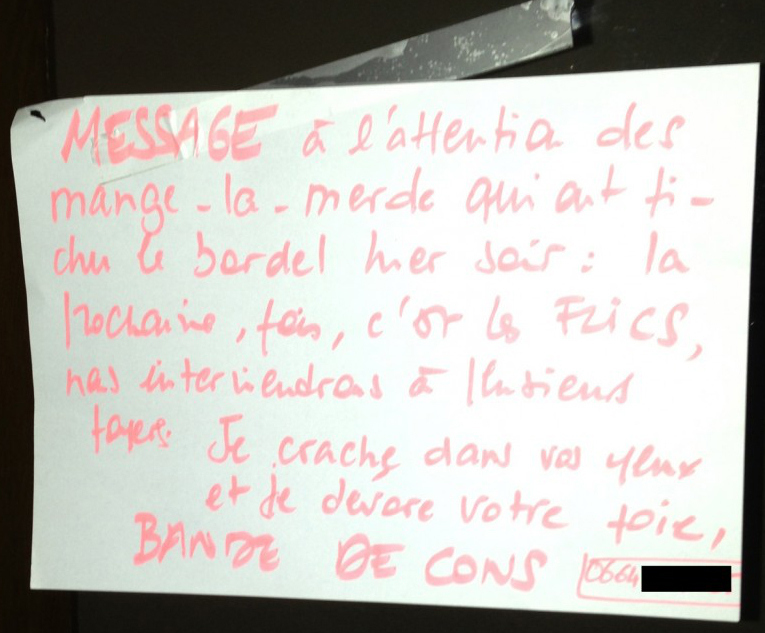 MESSAGE à l'attention des
mange-la-merde qui ont fi-
chu le bordel hier soir : la
prochaine, fois, c'est les FLICS,
nous interviendrons à plusieurs
foyers. Je crache dans vos yeux
et je dévore votre foie,
BANDE DE CONS 0664